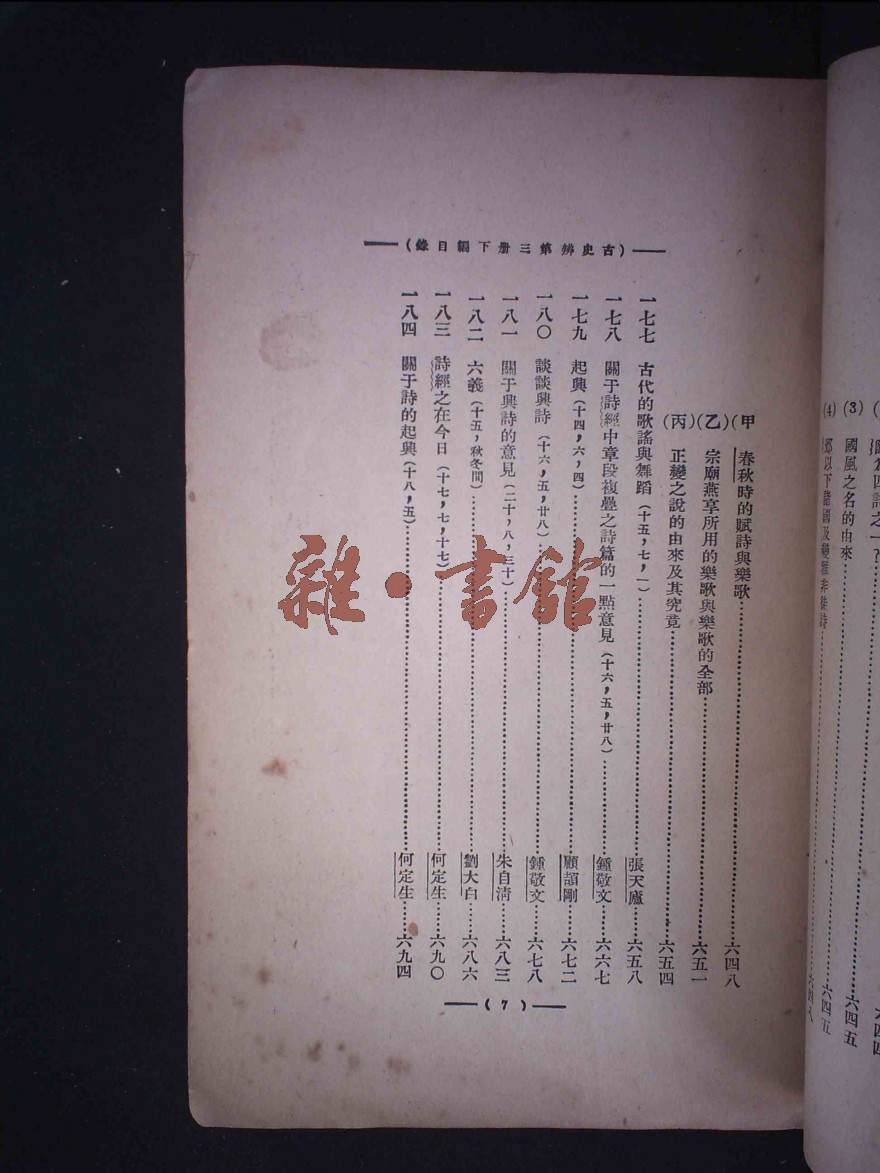 (古史辨第三册下編目錄)
(甲)春秋時的賦詩與樂歌……六四八
(乙)宗廟燕享所用的樂歌與樂歌的全部……六五一
(丙)正變之說的由來及其究竟……六五四
一七七 古代的歌謠與舞蹈(十五,七,一)……張天廬……六五八
一七八 關于詩經中章段複疊之詩篇的一點意見(十六,五,廿八)……鍾敬文……六六七
一七九 起興(十四,六,四)……顧頡剛……六七二
一八〇 談談興詩(十六,五,廿八)……鍾敬文……六七八
一八一 關于興詩的意見(二十,八,三十)……朱自清……六八三
一八二 六義(十五,秋冬間)……劉大白……六八六
一八三 詩經之在今日(十七,七,十七)……何定生……六九〇
一八四 關于詩的起興(十八,五)……何定生……六九四
(7)
四詩之一?……六四四
(3)國風之名的由來……六四五
(4)以下諸國及變雅非徒詩……六四五
六四八
雜·書館